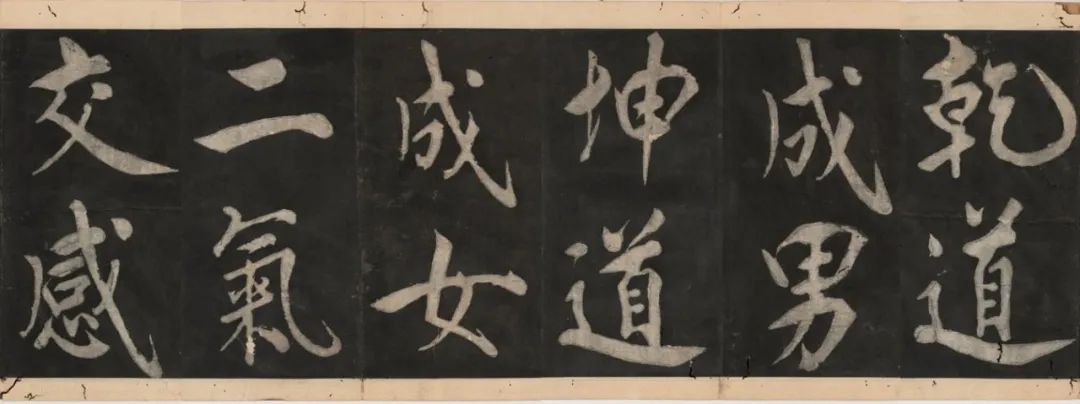 乾道
成男
坤道
成女
二氣
交感